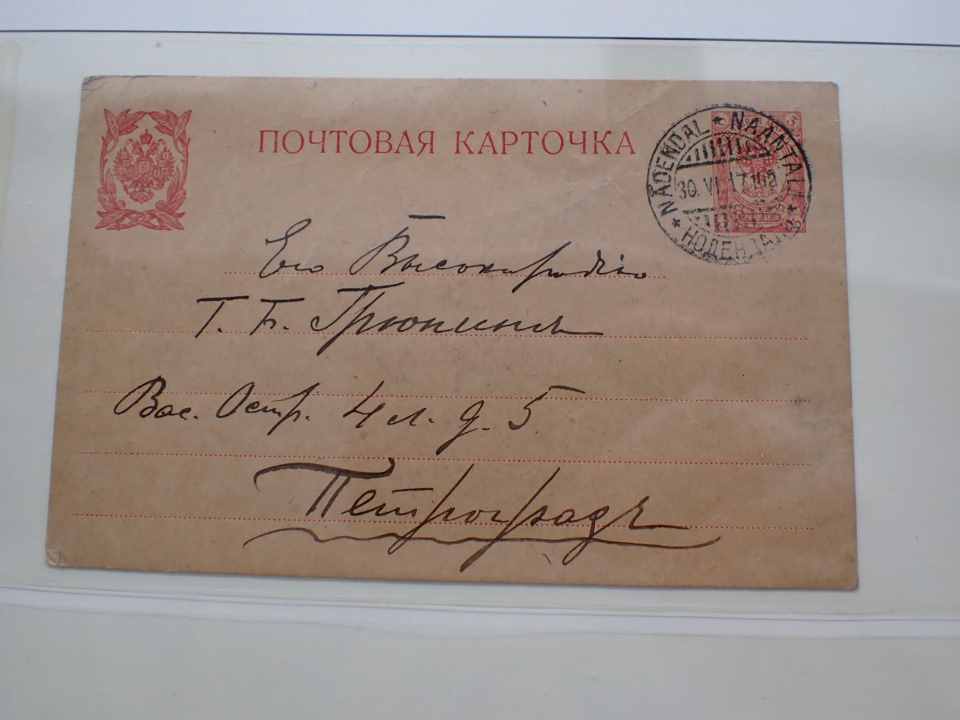 ПОЧТОВАЯ КАРТОЧКА
NÅDENDAL * NAANTALI
30. VI. 17
* НОДЕНДАЛЬ *
Его Высокородію
Г. Б.
Вас. Остр. 4 л. д. 5
Петроградъ